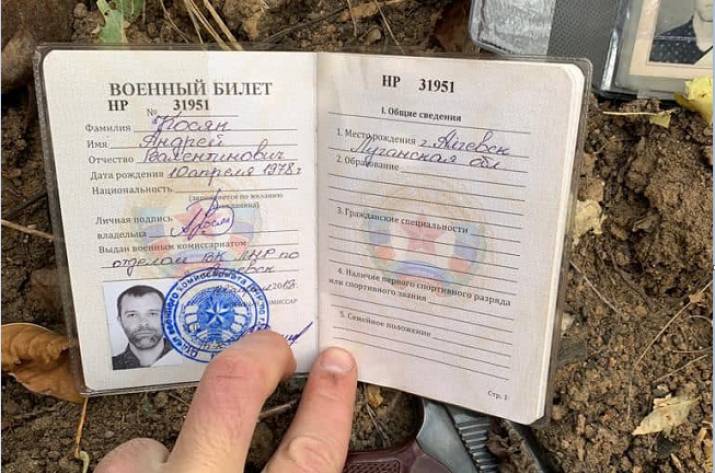 ВОЕННЫЙ БИЛЕТ
НР 31951
№
Фамилия Косян
Имя Андрей
Отчество Валентинович
Дата рождения 10 апреля 1978 г
Национальность
(заполняется по желанию
гражданина)
Личная подпись
владельца
Выдан военным комиссариатом
отделом ВК ЛНР по
НР 31951
I. Общие сведения
1. Место рождения г. Алчевск
Луганская обл
2. Образование
3. Гражданские специальности
4. Наличие первого спортивного разряда
или спортивного звания
5. Семейное положение
Стр. 1